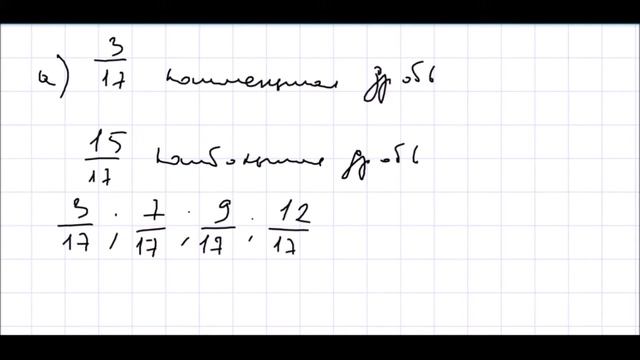 а) 3/17 наименьшая дробь
15/17 наибольшая дробь
3/17 ; 7/17 ; 9/17 ; 12/17